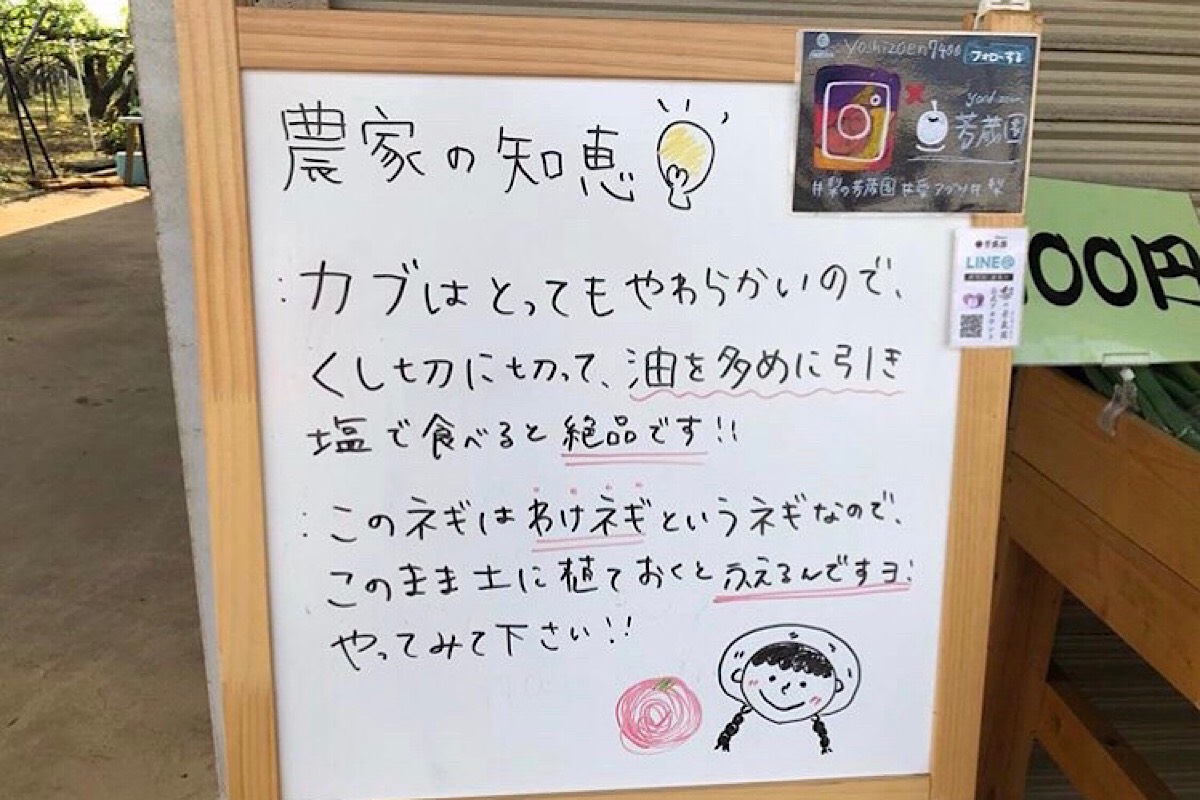 農家の知恵
：カブはとってもやわらかいので、
くし切に切って、油を多めに引き
塩で食べると絶品です!!
：このネギはわけネギというネギなので、
このまま土に植ておくとふえるんですヨ：
やってみて下さい!!
yoshizoen7400
フォローする
yoshizoen
芳蔵園
#梨の芳蔵園
LINE@
00円